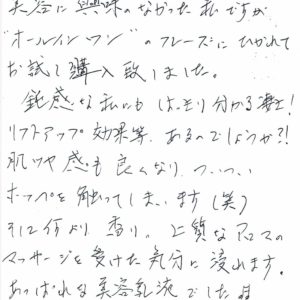 美容に興味のなかった私ですが
"オールインワン"のフレーズにひかれて
お試し購入致しました。
鈍感な私にもはっきり分かる凄さ!
リフトアップ効果等、あるのでしょうか?!
肌ツヤ感も良くなり、ついつい
ホッペを触ってしまいます(笑)
そして何より香り。上質なアロマの
マッサージを受けた気分に浸れます。
あっぱれな美容乳液でした